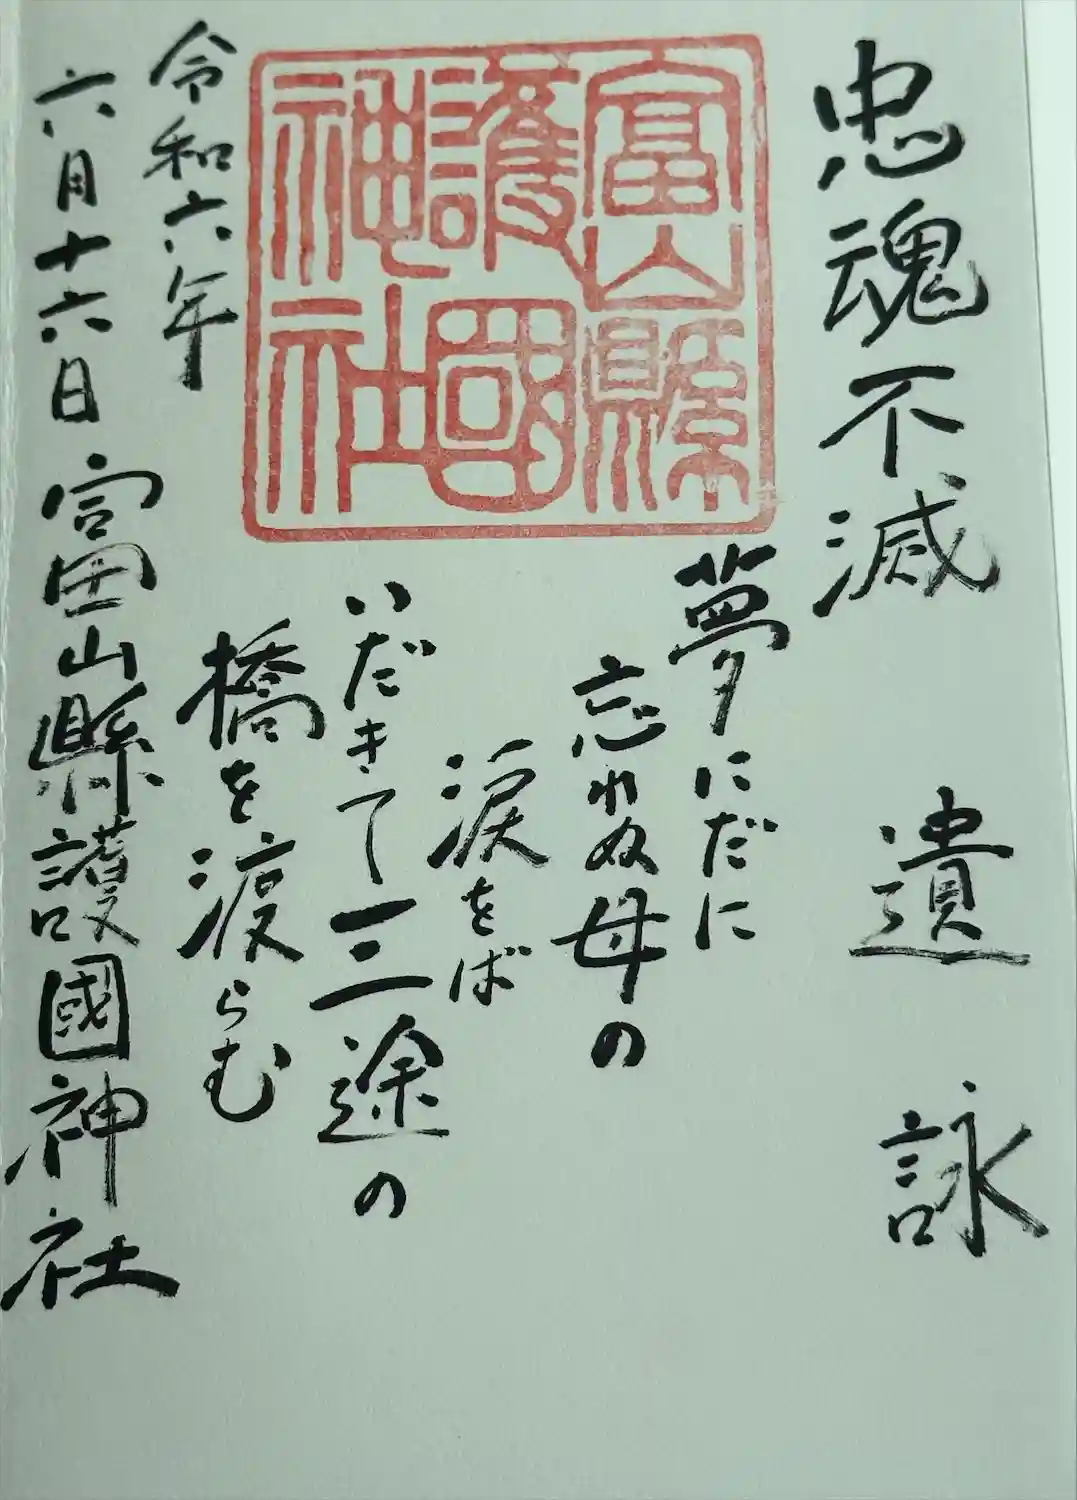 忠魂不滅 遺詠
富山縣
護國
神社
夢にだに
忘れぬ母の
涙をば
いだきて三途の
橋を渡らむ
令和六年
六月十六日 富山縣護國神社